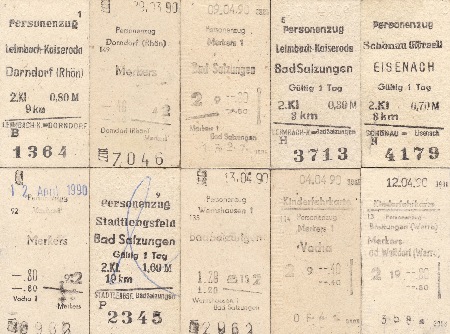 1
Personenzug
Leimbach-Kaiseroda
Dorndorf (Rhön)
2.Kl 0,80 M
9 km
LEIMBACH-K. DORNDORF
B
1364
29.03.90
Personenzug
Dorndorf (Rhön)
Merkers
2
Dorndorf (Rhön)
Merkers
7046
09.04.90
Personenzug
Merkers 1
Bad Salzungen
2 9 --.80
Merkers 1
Bad Salzungen
Personenzug
Leimbach-Kaiseroda
Bad Salzungen
Gültig 1 Tag
2.Kl 0,80 M
8 km
LEIMBACH-K. Bad Salzungen
H
3713
Personenzug
EISENACH
Gültig 1 Tag
2.Kl 0,70 M
8 km
SCHÖNAU Eisenach
N
4179
12. April 1990
92
Merkers
--.80 2
Vacha 1
Merkers
9
Personenzug
Stadtlengsfeld
Bad Salzungen
Gültig 1 Tag
2.Kl 1,60 M
19 km
STADTLENGSF. Bad Salzungen
P
2345
13.04.90
Personenzug
Wernshausen 1
135
1.20
Wernshausen 1
Bad Salzungen
2962
04.04.90
Kinderfahrkarte
Personenzug
Merkers 1
Vacha
2 9 --.40
12.04.90
Kinderfahrkarte
Personenzug
Breitungen (Werra)
Merkers
od Walldorf (Werra)
2 19 --.80